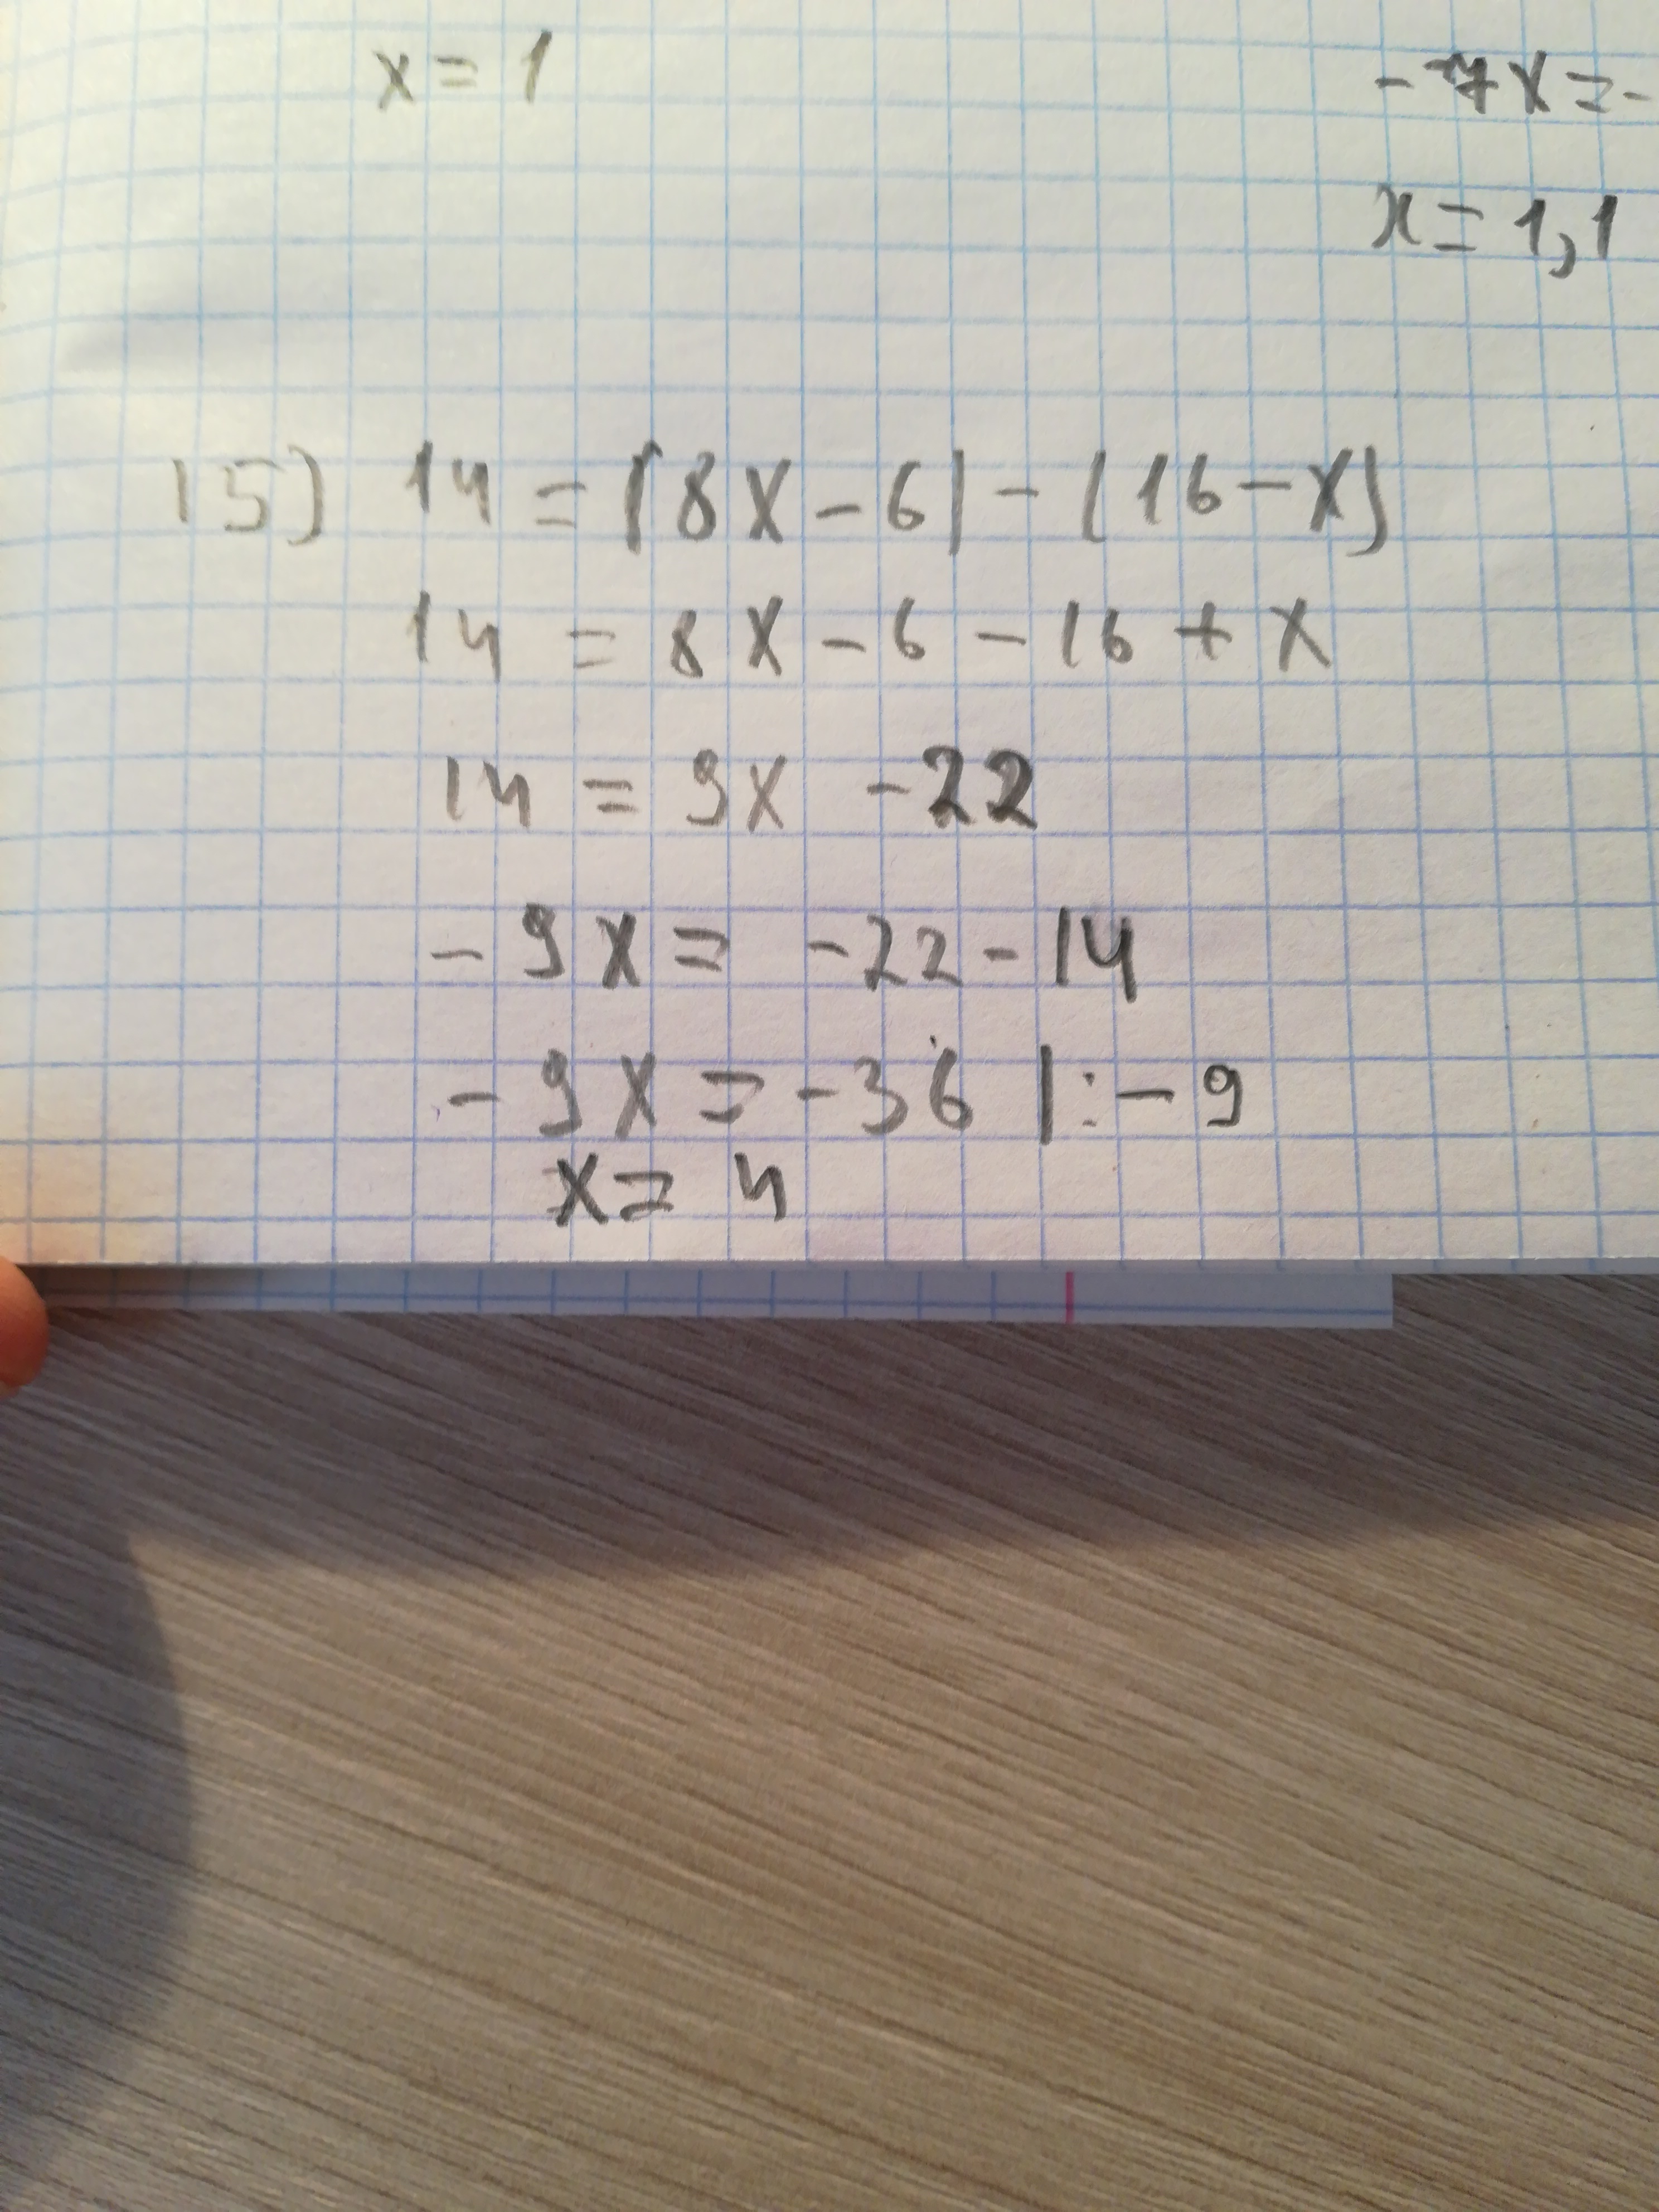 x = 1
- 7x = -
x = 1,1
15) 14 = (8x - 6) - (16 - x)
14 = 8x - 6 - 16 + x
14 = 9x - 22
- 9x = -22 - 14
- 9x = -36 |: - 9
x = 4